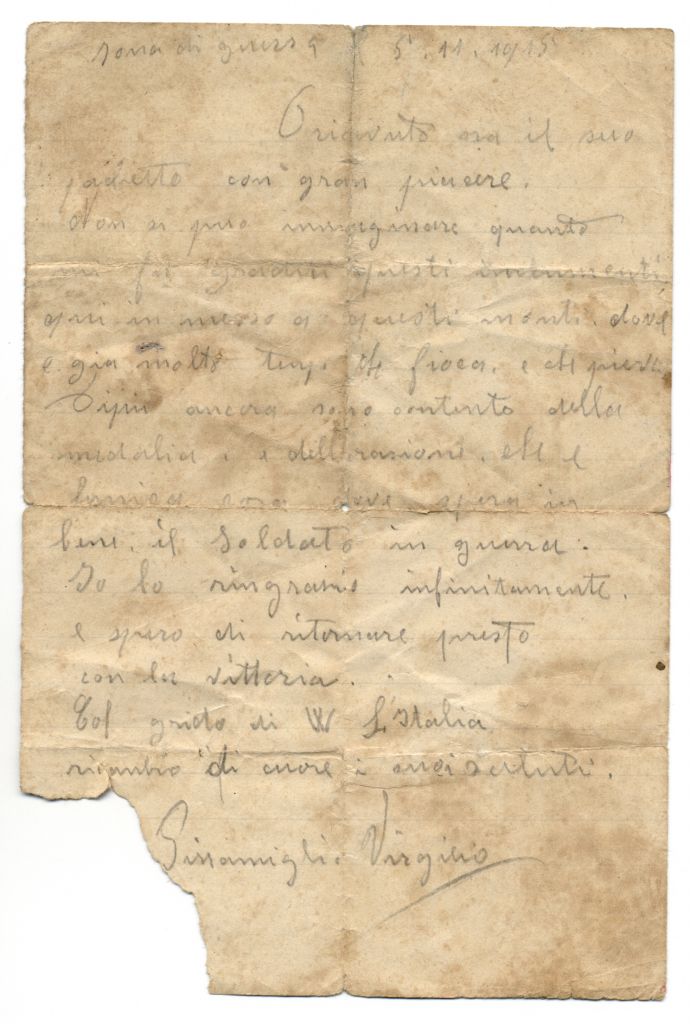 sona di guerra 5.11.1915
O ricevuto ora il suo
pachetto con gran piacere.
Non si puo immaginare quanto
mi fu graditi questi indumenti,
qui in messo a questi monti. dove
e gia molto tempo che fioca. e che piove
Dipiu ancora sono contento della
medalia, e dell'rasione. che e
lunica cosa dove spera in
bene. il soldato in guerra.
Io lo ringrasio infinitamente.
e spero di ritornare presto
con la vittoria.
Col grido di W L'Italia
ricambio di cuore i suoi saluti.
Virgilio